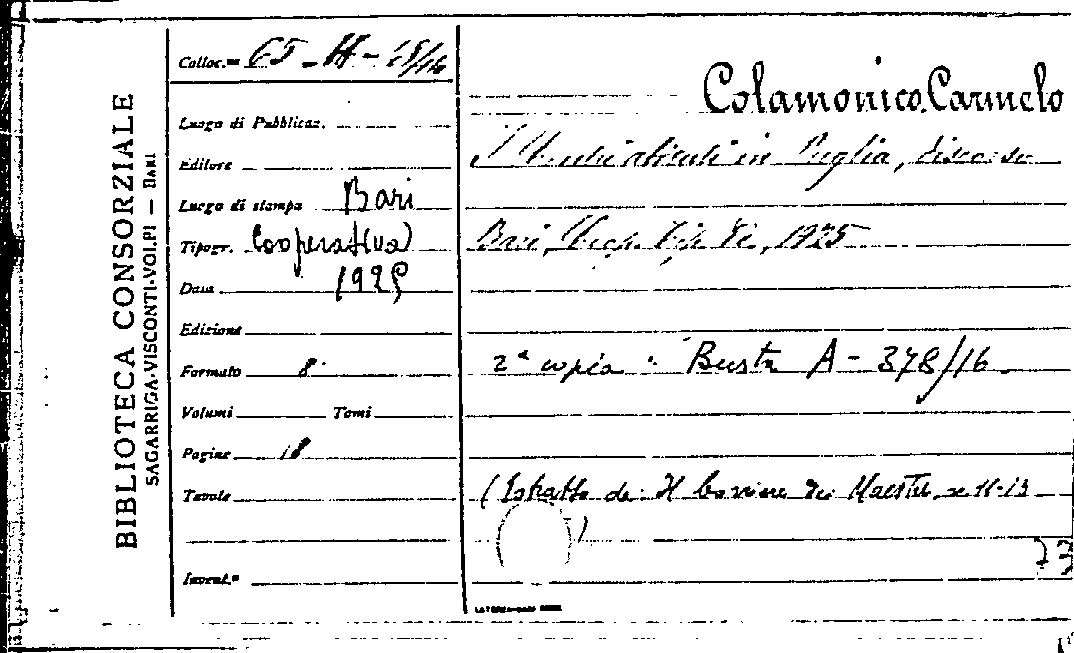 BIBLIOTECA CONSORZIALE
SAGARRIGA-VISCONTI-VOLPI — BARI
Colloc.ne 65-H-15/16
Luogo di Pubblicaz.
Editore
Luogo di stampa Bari
Tipogr. Cooperativa
Data 1925
Edizione
Formato 8°
Volumi Tomi
Pagine 18
Tavole
Invent.°
Colamonico, Carmelo
in Puglia, discorso
Bari, 1925
2ª copia: Busta A-378/16
(Estratto da: Il Corriere dei Maestri, n. 11-13
)
73